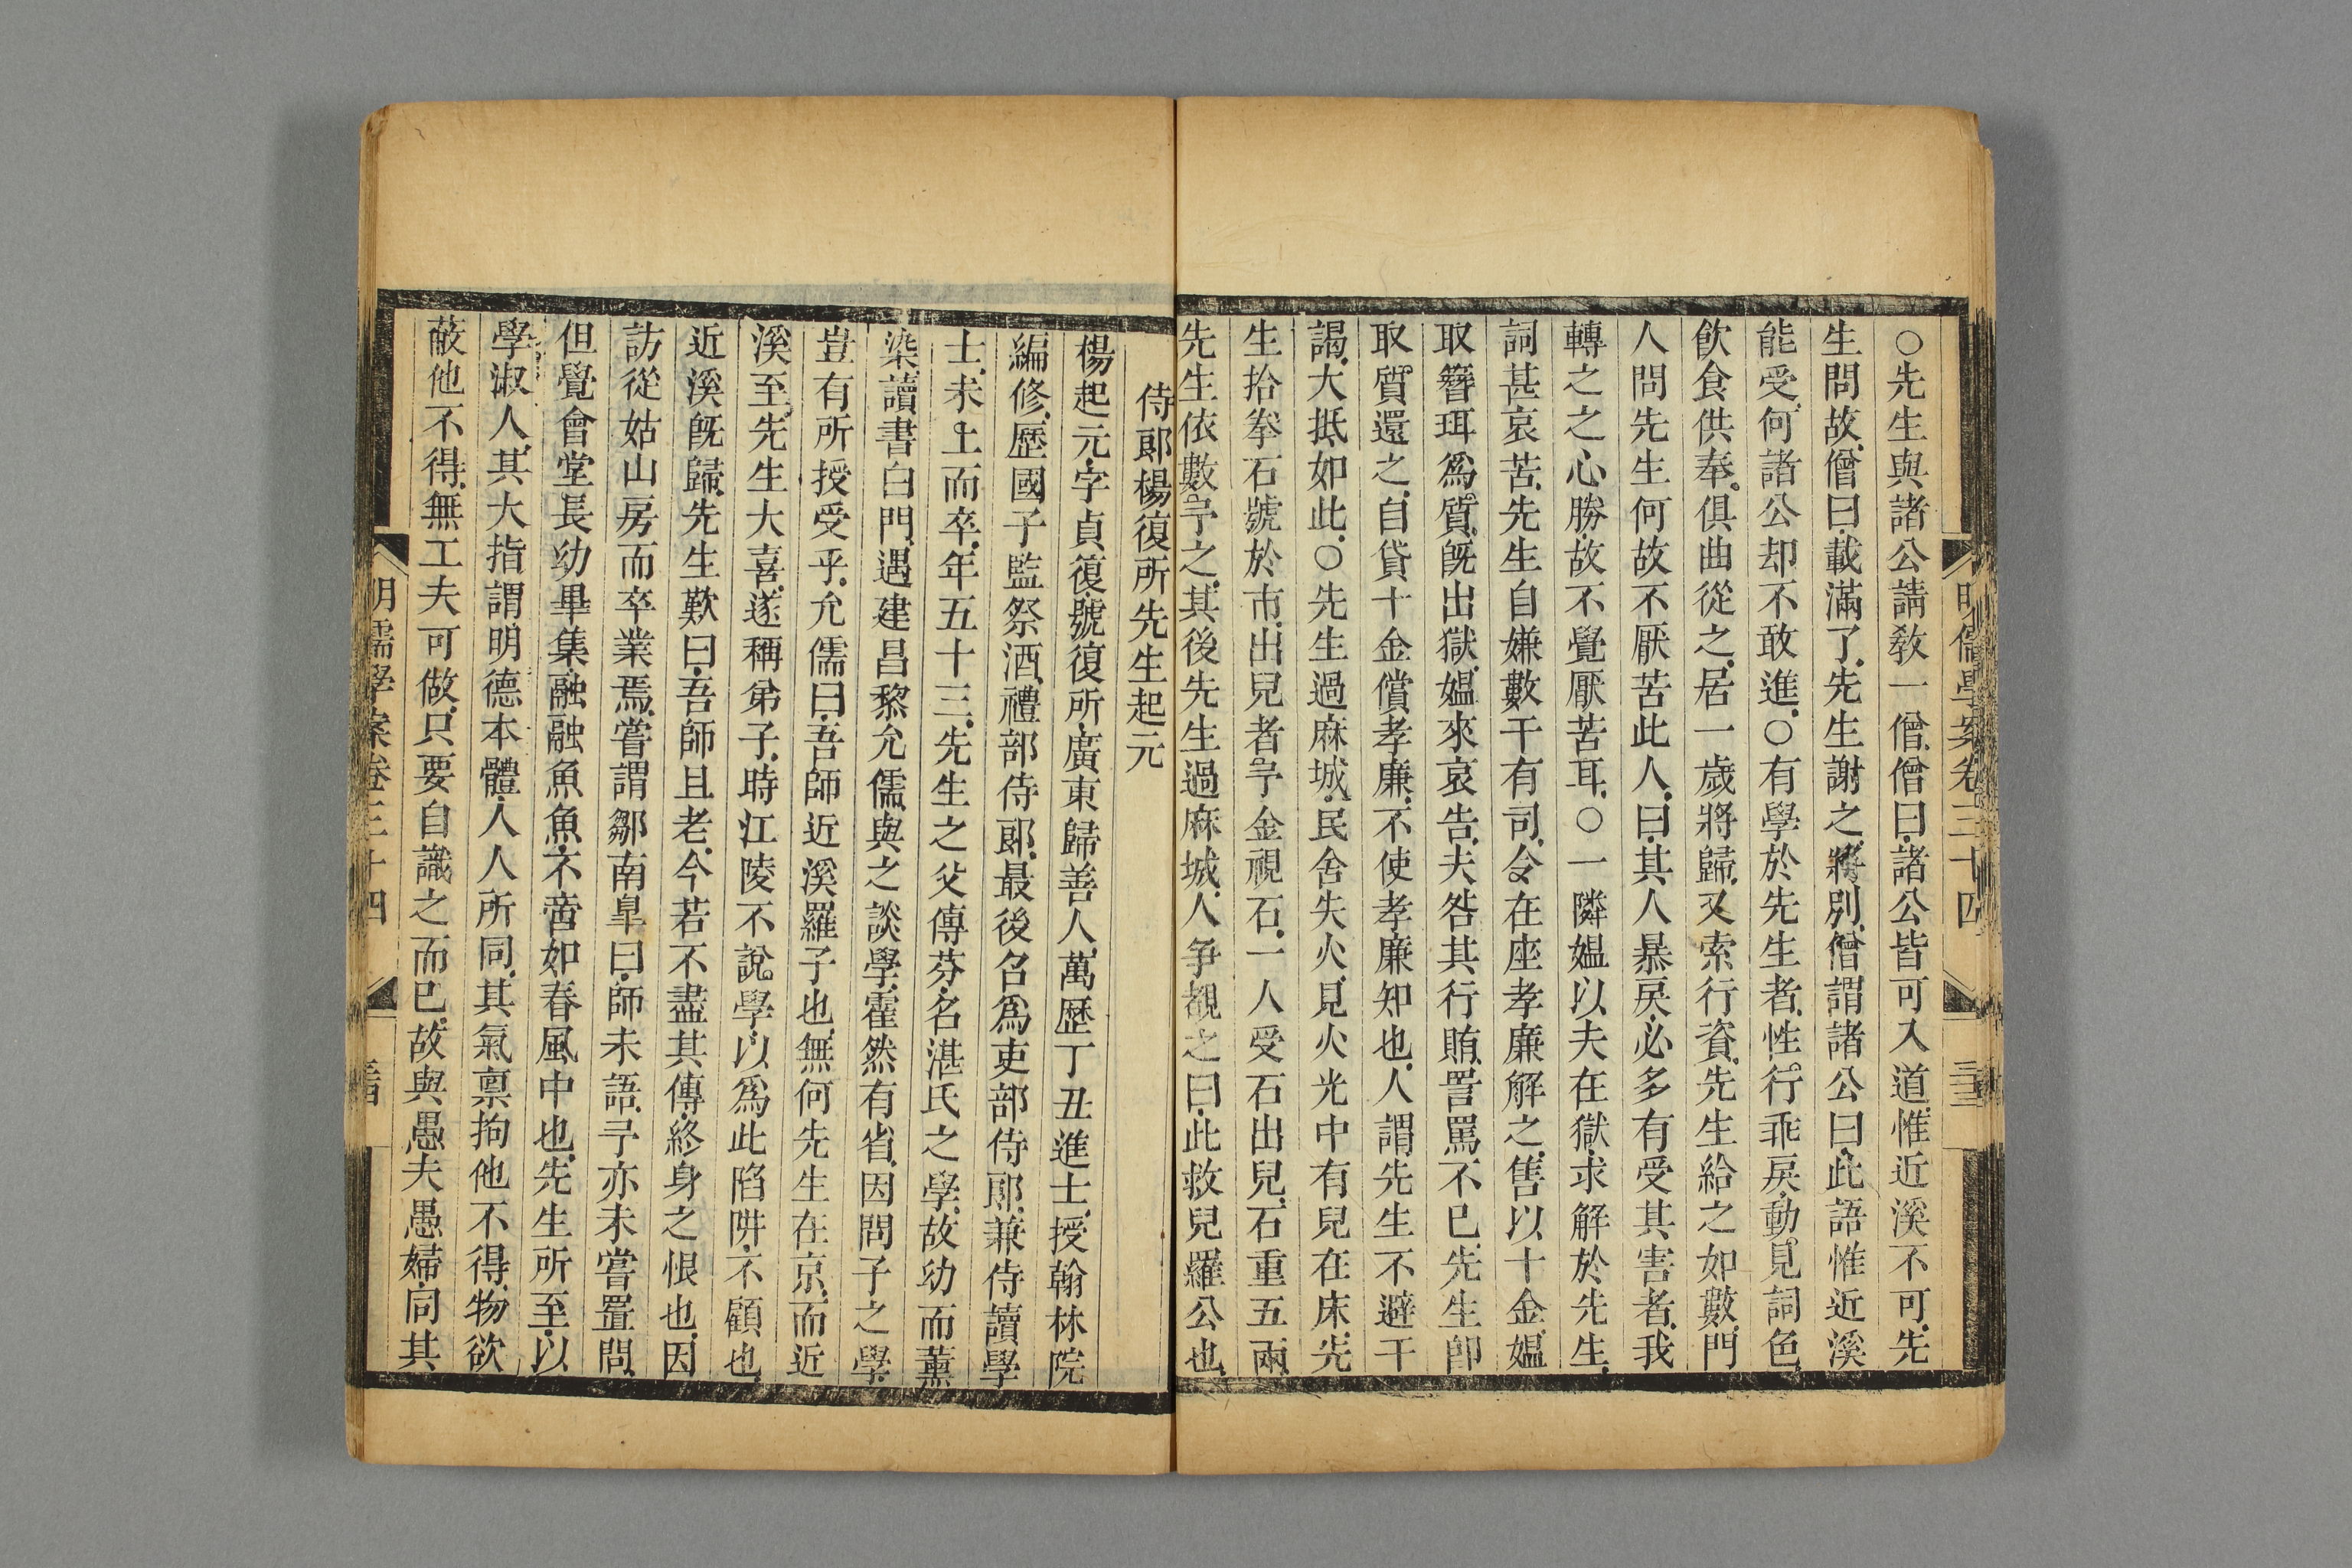 明儒學案卷三十四 三三
○先生與諸公請敎一僧僧曰諸公皆可入道惟近溪不可先
生問故僧曰載滿了先生謝之將別僧謂諸公曰此語惟近溪
能受何諸公却不敢進○有學於先生者性行乖戾動見詞色
飲食供奉俱曲從之居一歲將歸又索行資先生給之如數門
人問先生何故不厭苦此人曰其人暴戾必多有受其害者我
轉之之心勝故不覺厭苦耳○一隣媼以夫在獄求解於先生
詞甚哀苦先生自嫌數干有司令在座孝廉解之售以十金媼
取簪珥爲質旣出獄媼來哀告夫咎其行賄詈罵不已先生卽
取質還之自貸十金償孝廉不使孝廉知也人謂先生不避干
謁大抵如此○先生過麻城民舍失火見火光中有兒在床先
生拾拳石號於市出兒者予金視石一人受石出兒石重五兩
先生依數予之其後先生過麻城人爭覩之曰此救兒羅公也
侍郎楊復所先生起元
楊起元字貞復號復所廣東歸善人萬歷丁丑進士授翰林院
編修歷國子監祭酒禮部侍郎最後召爲吏部侍郎兼侍讀學
士未上而卒年五十三先生之父傳芬名湛氏之學故幼而薰
染讀書白門遇建昌黎允儒與之談學霍然有省因問子之學
豈有所授受乎允儒曰吾師近溪羅子也無何先生在京而近
溪至先生大喜遂稱弟子時江陵不說學以爲此陷阱不顧也
近溪旣歸先生歎曰吾師且老今若不盡其傳終身之恨也因
訪從姑山房而卒業焉嘗謂鄒南臯曰師未語予亦未嘗置問
但覺會堂長幼畢集融融魚魚不啻如春風中也先生所至以
學淑人其大指謂明德本體人人所同其氣稟拘他不得物欲
蔽他不得無工夫可做只要自識之而已故與愚夫愚婦同其
明儒學案卷三十四